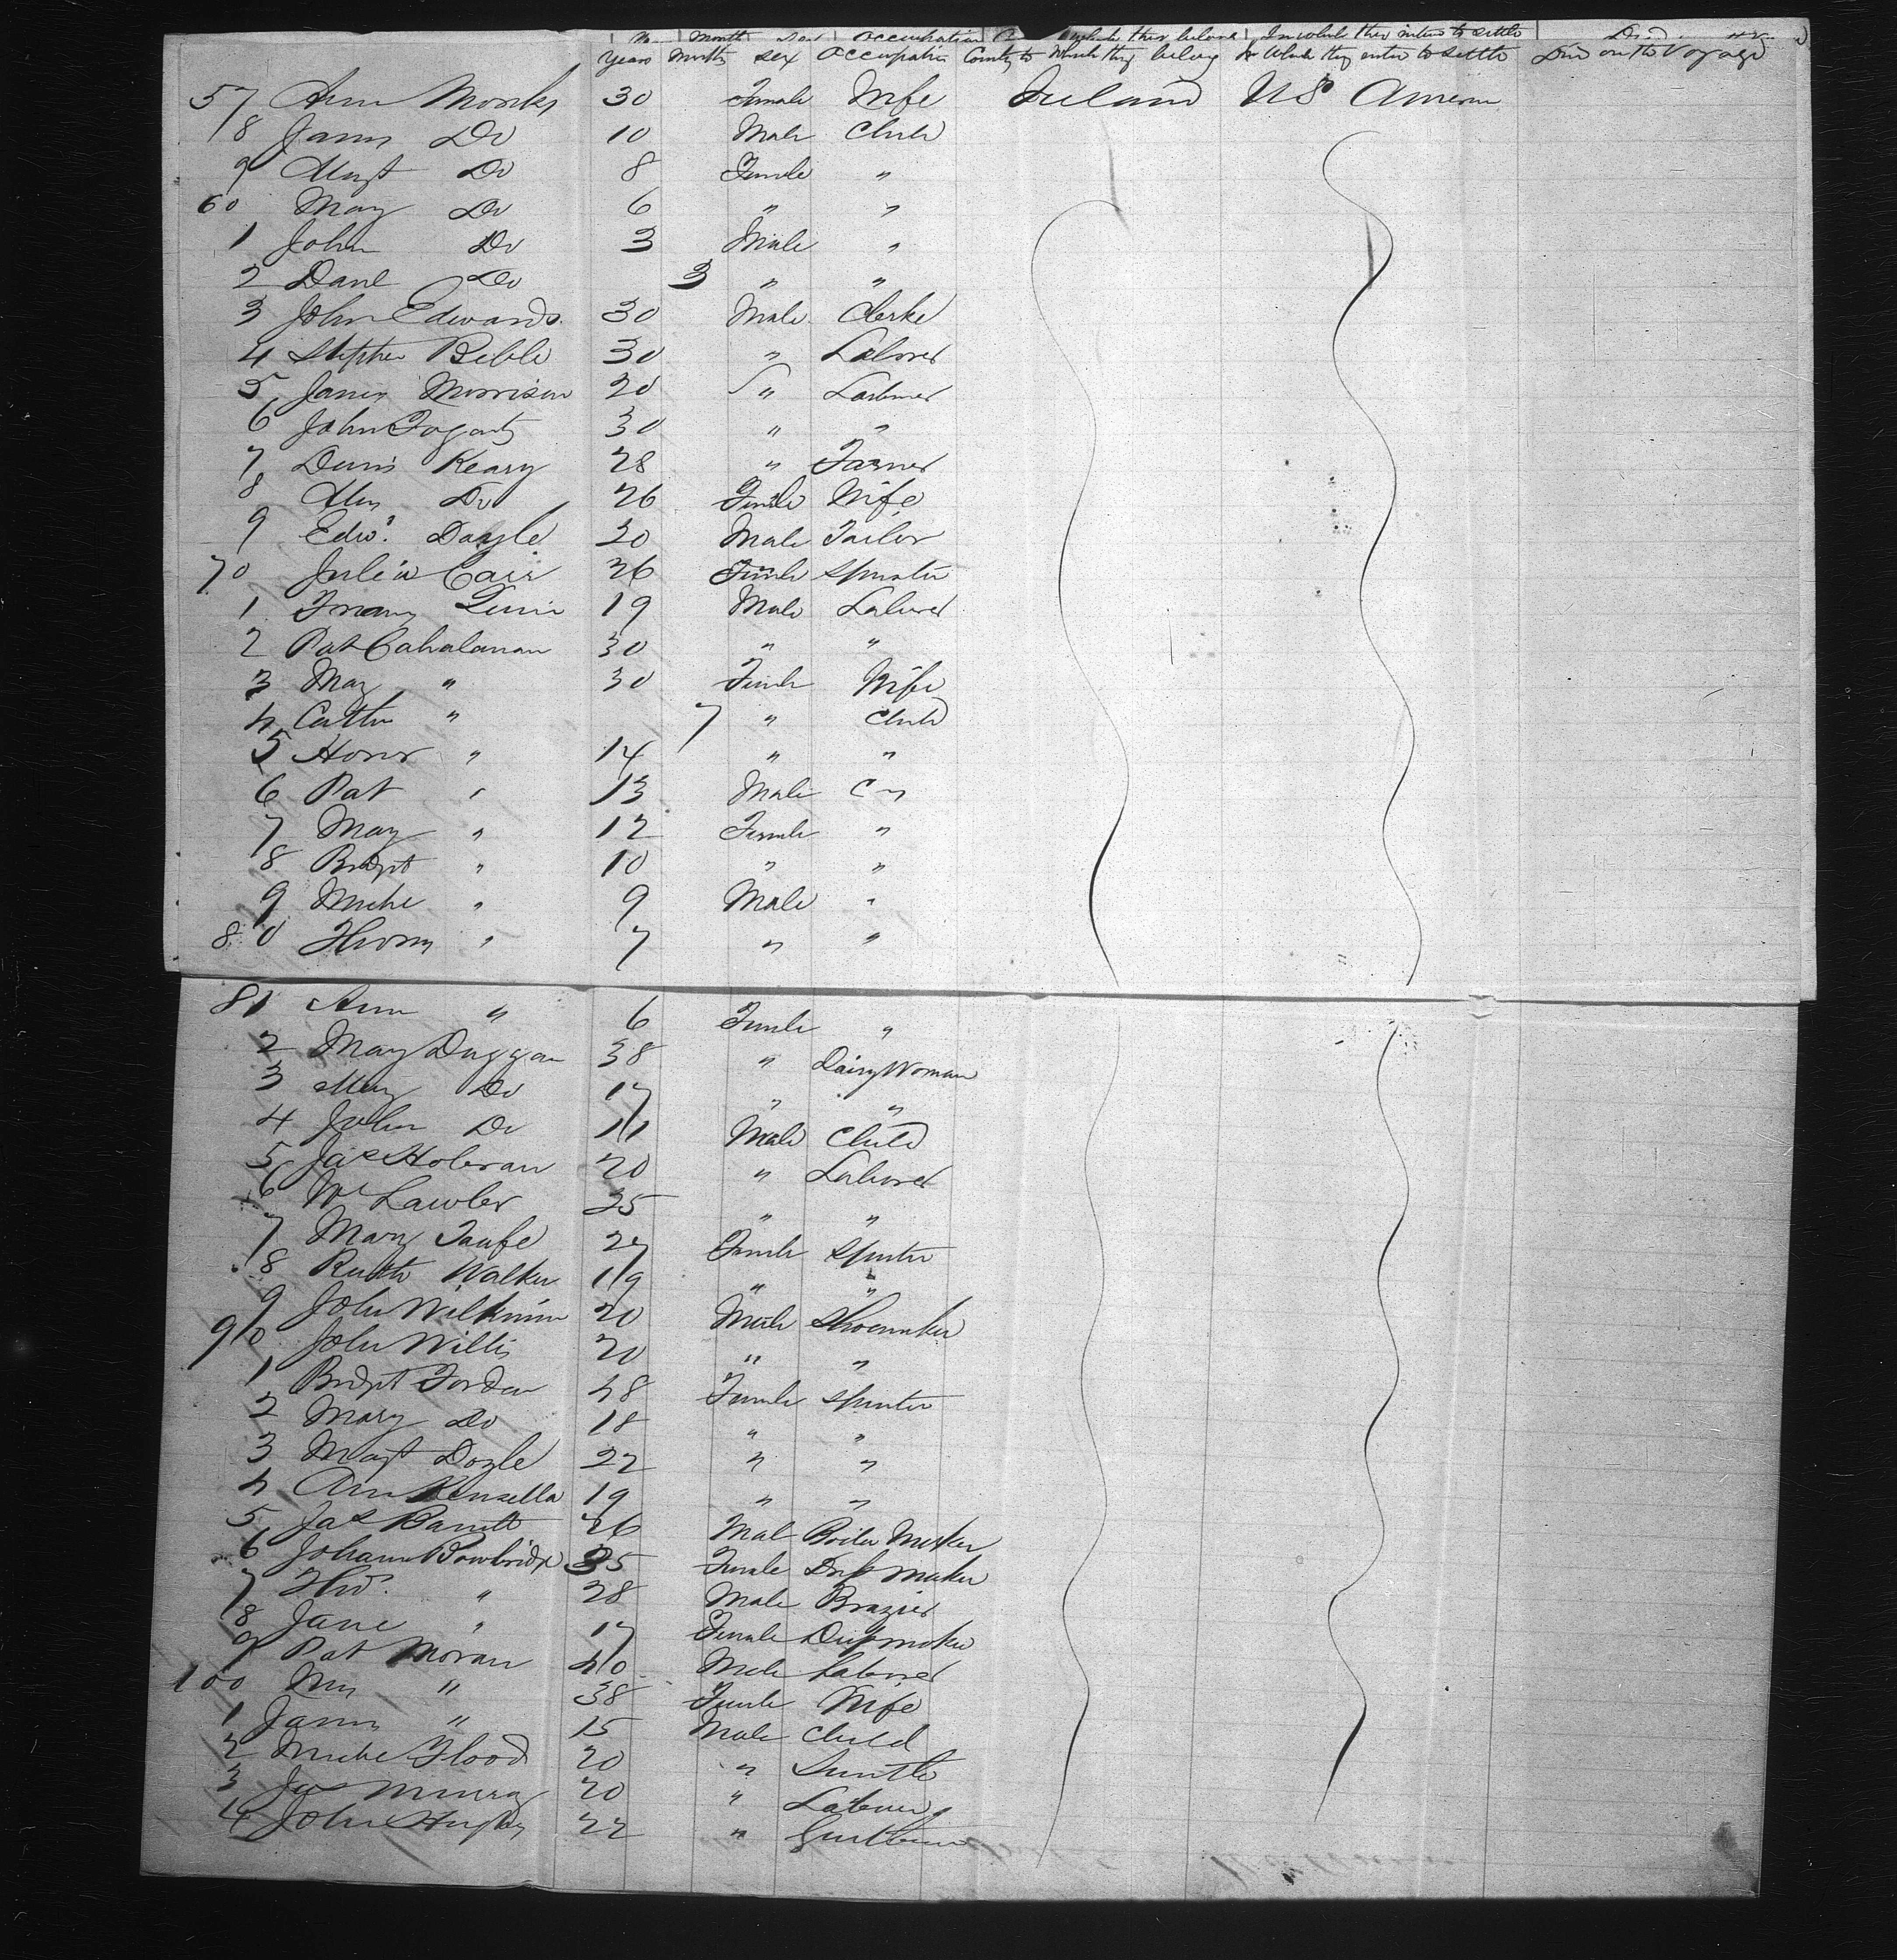 Years Month Sex Occupation County to which they belong In which they intend to settle Died on the Voyage
57 Ann Monks 30 Female Wife Ireland US America
8 James Do 10 Male Child
9 Margt Do 8 Female "
60 Mary Do 6 " "
1 John Do 3 Male "
2 Danl Do 3 " "
3 John Edwards 30 Male Clerke
4 Stephen Bibble 30 " Laborer
5 James Morrison 20 " Laborer
6 John Fogarty 30 " "
7 Dennis Keary 28 " Farmer
8 Do 26 Female Wife
9 Edwd. Doyle 20 Male Tailor
70 Julia Cair 26 Female Spinster
1 19 Male Laborer
2 Pat Cahalanan 30 " "
3 Mary " 30 Female Wife
4 Cathn " 7 " Child
5 Honor " 14 " "
6 Pat " 13 Male
7 Mary " 12 Female "
8 Bridgt " 10 " "
9 Miche " 9 Male "
80 Thoms " 7 " "
81 Ann " 6 Female "
2 Mary Duggan 38 " Dairy Woman
3 Mary Do 17 " "
4 John Do 11 Male Child
5 Jas Holoran 20 " Laborer
6 Wm Lawler 25 " "
7 Mary Taafe 27 Female Spinster
8 Ruth Walker 19 " "
9 John Wilkinson 20 Male Shoemaker
90 John Willis 20 " "
1 Bridgt Jordan 48 Female Spinster
2 Mary Do 18 " "
3 Margt Doyle 22 " "
4 Ann Kinsella 19 " "
5 Jas Barrett 26 Male Boiler Maker
6 Johana Bowbridge 35 Female Dressmaker
7 Thos. " 28 Male Brazier
8 Jane " 17 Female Dressmaker
9 Pat Moran 40 Male Laborer
100 Mrs " 38 Female Wife
1 James " 15 Male Child
2 Miche Flood 20 " Smith
3 Jas Murray 20 " Laborer
4 John Hughes 22 " Gentleman